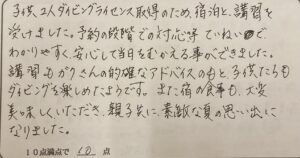 子供、2人ダイビングライセンス取得のため、宿泊と、講習を
受けました。予約の段階での対応等ていねいで
わかりやすく、安心して当日をむかえる事ができました。
講習もガクさんの的確なアドバイスのもと、子供たちも
ダイビングを楽しめたようです。また宿の食事も、大変
美味しくいただき、親子共に、素敵な夏の思い出に
なりました。
10点満点で 10 点